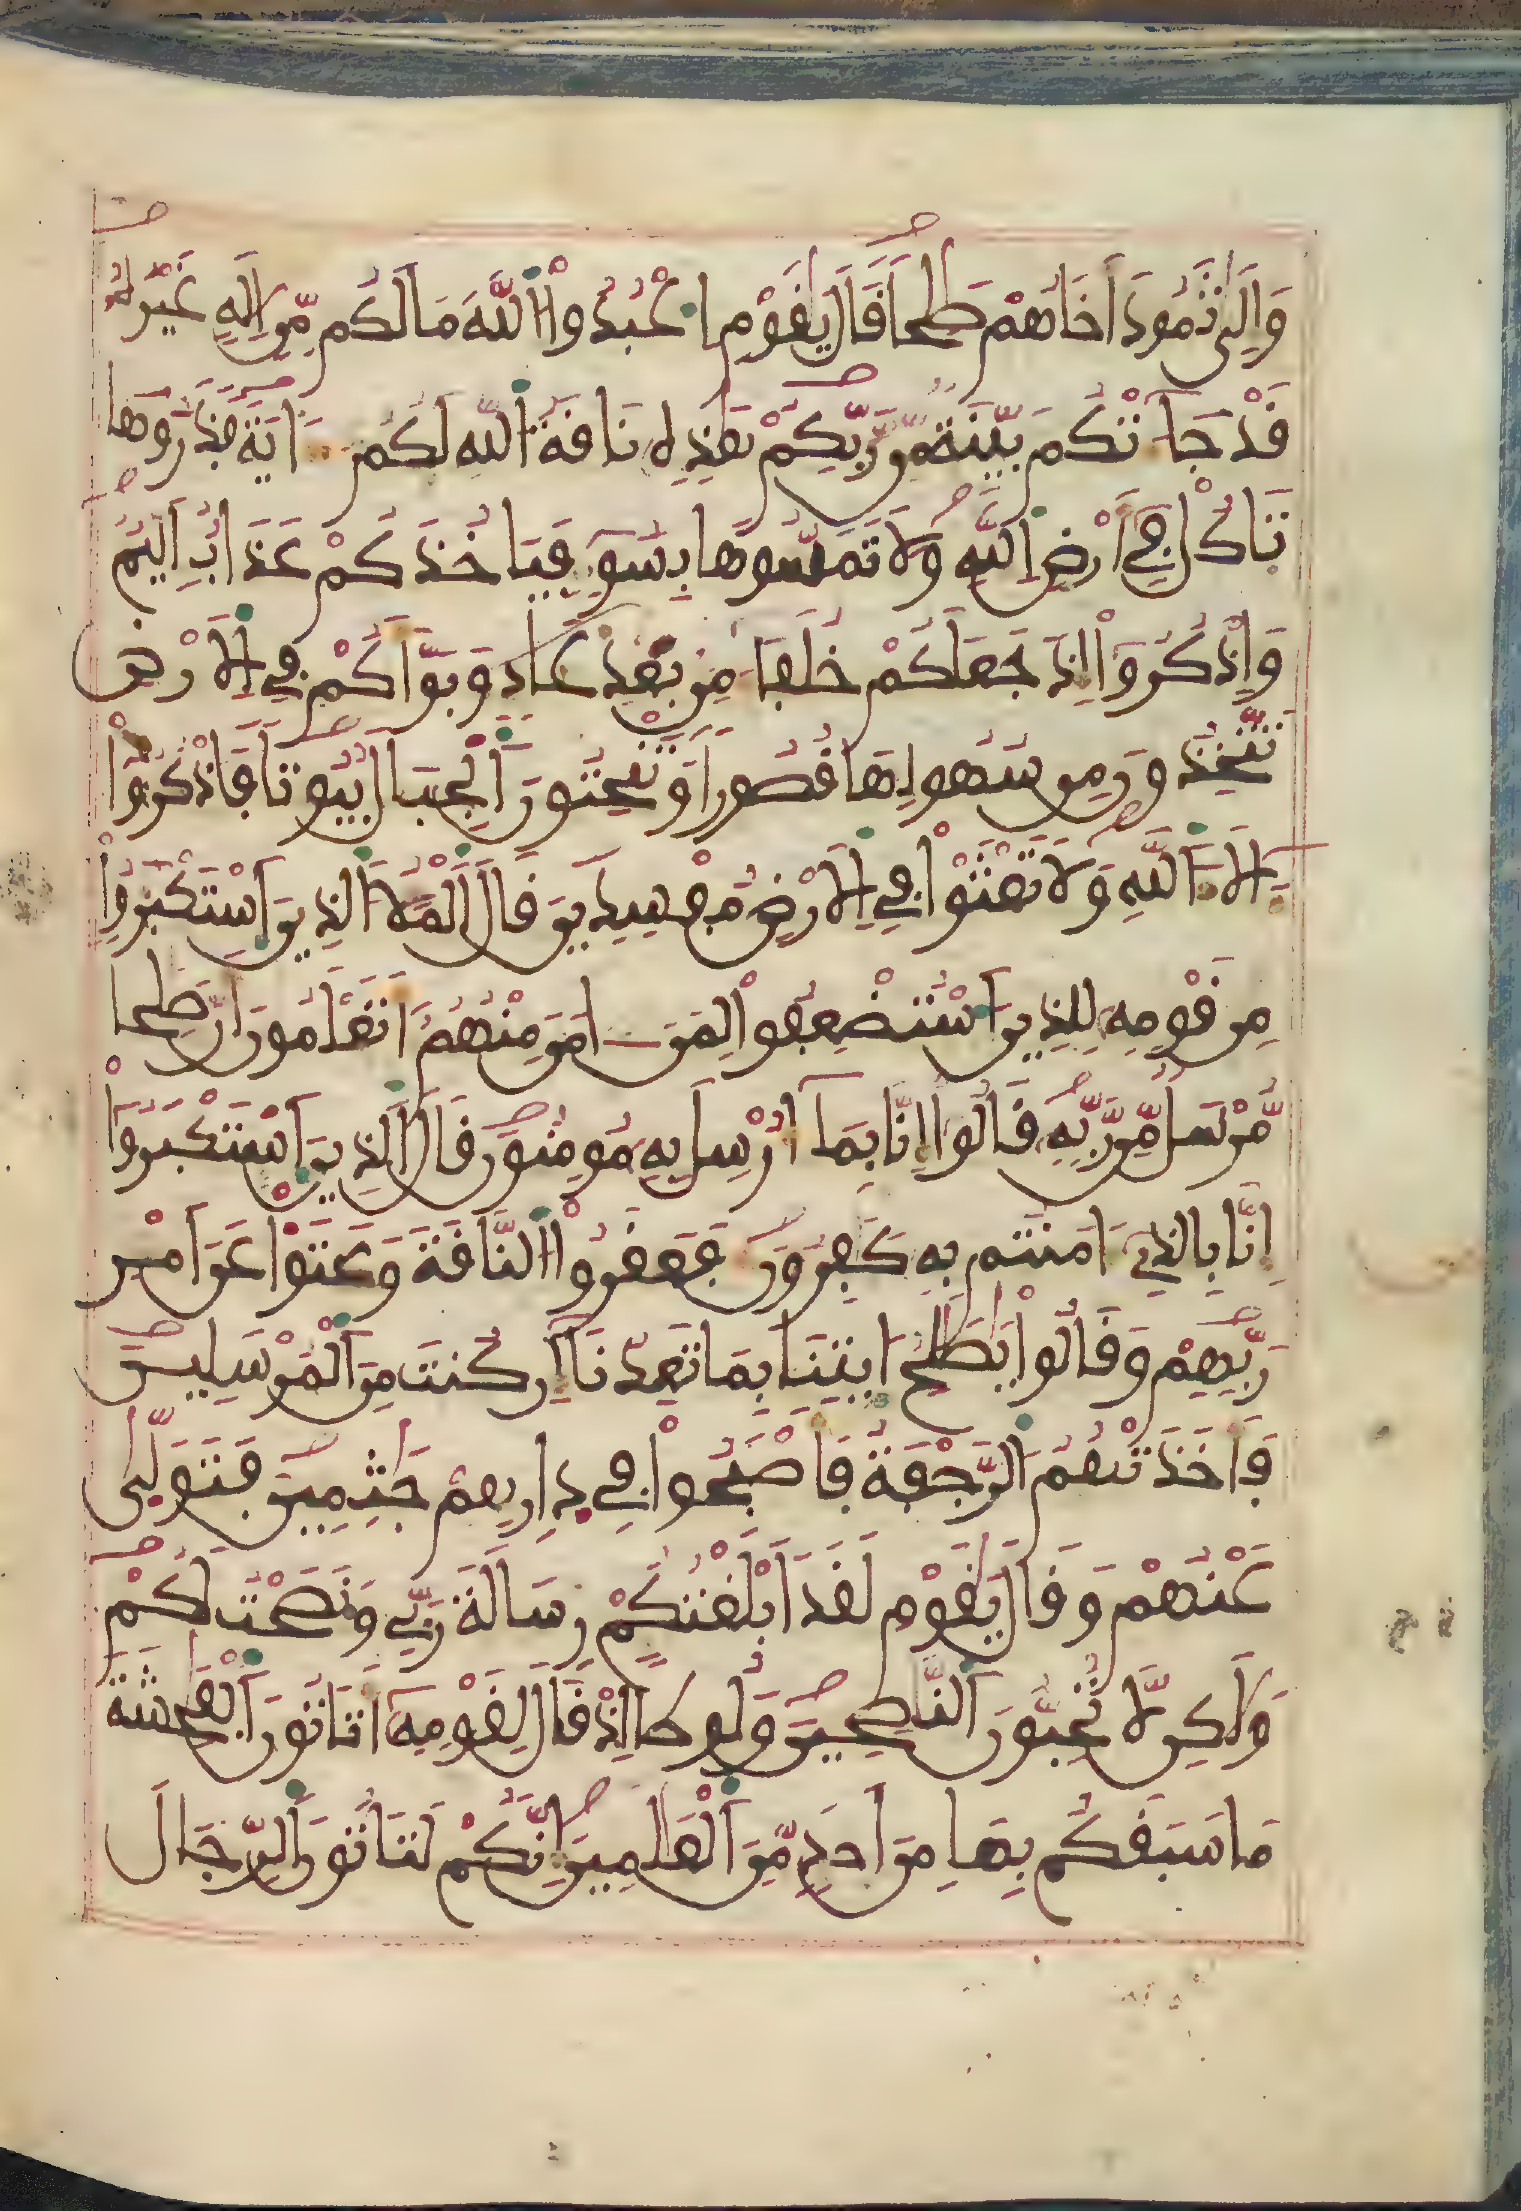 وَإِلَىٰ ثَمُودَ أَخَاهُمْ صَٰلِحًا قَالَ يَٰقَوْمِ اعْبُدُوا اللَّهَ مَا لَكُم مِّنِ الَهٍ غَيْرُهُ
قَدْ جَآءَتْكُم بَيِّنَةٌ مِّن رَّبِّكُمْ هَٰذِهِ نَاقَةُ اللَّهِ لَكُمُ ءَايَةً فَذَرُوهَا
تَاكُلْ فِي أَرْضِ اللَّهِ وَلَا تَمَسُّوهَا بِسُوءٍ فَيَاخُذَكُمْ عَذَابٌ اَلِيمٌ
وَاذْكُرُوا إِذْ جَعَلَكُمْ خُلَفَآءَ مِن بَعْدِ عَادٍ وَبَوَّأَكُمْ فِي الَارْضِ
تَتَّخِذُونَ مِن سُهُولِهَا قُصُورًا وَتَنْحِتُونَ الْجِبَالَ بُيُوتًا فَاذْكُرُوا
ءَالَآءَ اللَّهِ وَلَا تَعْثَوْا فِي الَارْضِ مُفْسِدِينَ قَالَ الْمَلَأُ الَّذِينَ اسْتَكْبَرُوا
مِن قَوْمِهِ لِلَّذِينَ اسْتُضْعِفُوا لِمَنَ ـامَنَ مِنْهُمُ أَتَعْلَمُونَ أَنَّ صَٰلِحًا
مُّرْسَلٌ مِّن رَّبِّهِ قَالُوا إِنَّا بِمَا أُرْسِلَ بِهِ مُومِنُونَ قَالَ الَّذِينَ اسْتَكْبَرُوا
إِنَّا بِالَّذِي ءَامَنتُم بِهِ كَٰفِرُونَ فَعَقَرُوا النَّاقَةَ وَعَتَوْا عَنَ امْرِ
رَبِّهِمْ وَقَالُوا يَٰصَٰلِحُ ايتِنَا بِمَا تَعِدُنَآ إِن كُنتَ مِنَ الْمُرْسَلِينَ
فَأَخَذَتْهُمُ الرَّجْفَةُ فَأَصْبَحُوا فِي دِارِهِمْ جَٰثِمِينَ فَتَوَلَّىٰ
عَنْهُمْ وَقَالَ يَٰقَوْمِ لَقَدَ ابْلَغْتُكُمْ رِسَالَةَ رَبِّي وَنَصَحْتُ لَكُمْ
وَلَٰكِن لَّا تُحِبُّونَ النَّٰصِحِينَ وَلُوطًا إِذْ قَالَ لِقَوْمِهِ أَتَاتُونَ الْفَٰحِشَةَ
مَا سَبَقَكُم بِهَا مِنَ احَدٍ مِّنَ الْعَٰلَمِينَ إِنَّكُمْ لَتَاتُونَ الرِّجَالَ